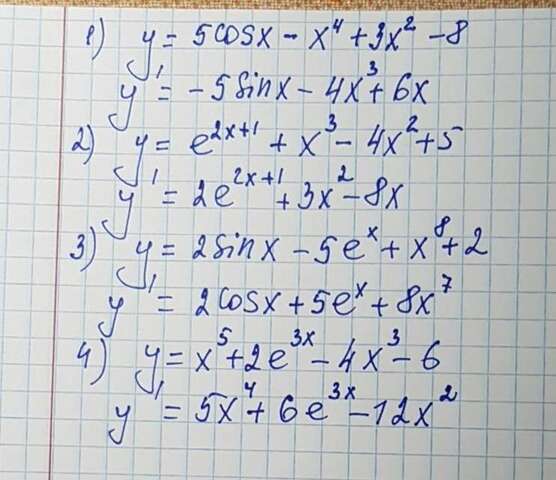 1) y = 5cosx - x⁴ + 3x² - 8
y' = -5sinx - 4x³ + 6x
2) y = e²ˣ⁺¹ + x³ - 4x² + 5
y' = 2e²ˣ⁺¹ + 3x² - 8x
3) y = 2sinx - 5eˣ + x⁸ + 2
y' = 2cosx + 5eˣ + 8x⁷
4) y = x⁵ + 2e³ˣ - 4x³ - 6
y' = 5x⁴ + 6e³ˣ - 12x²